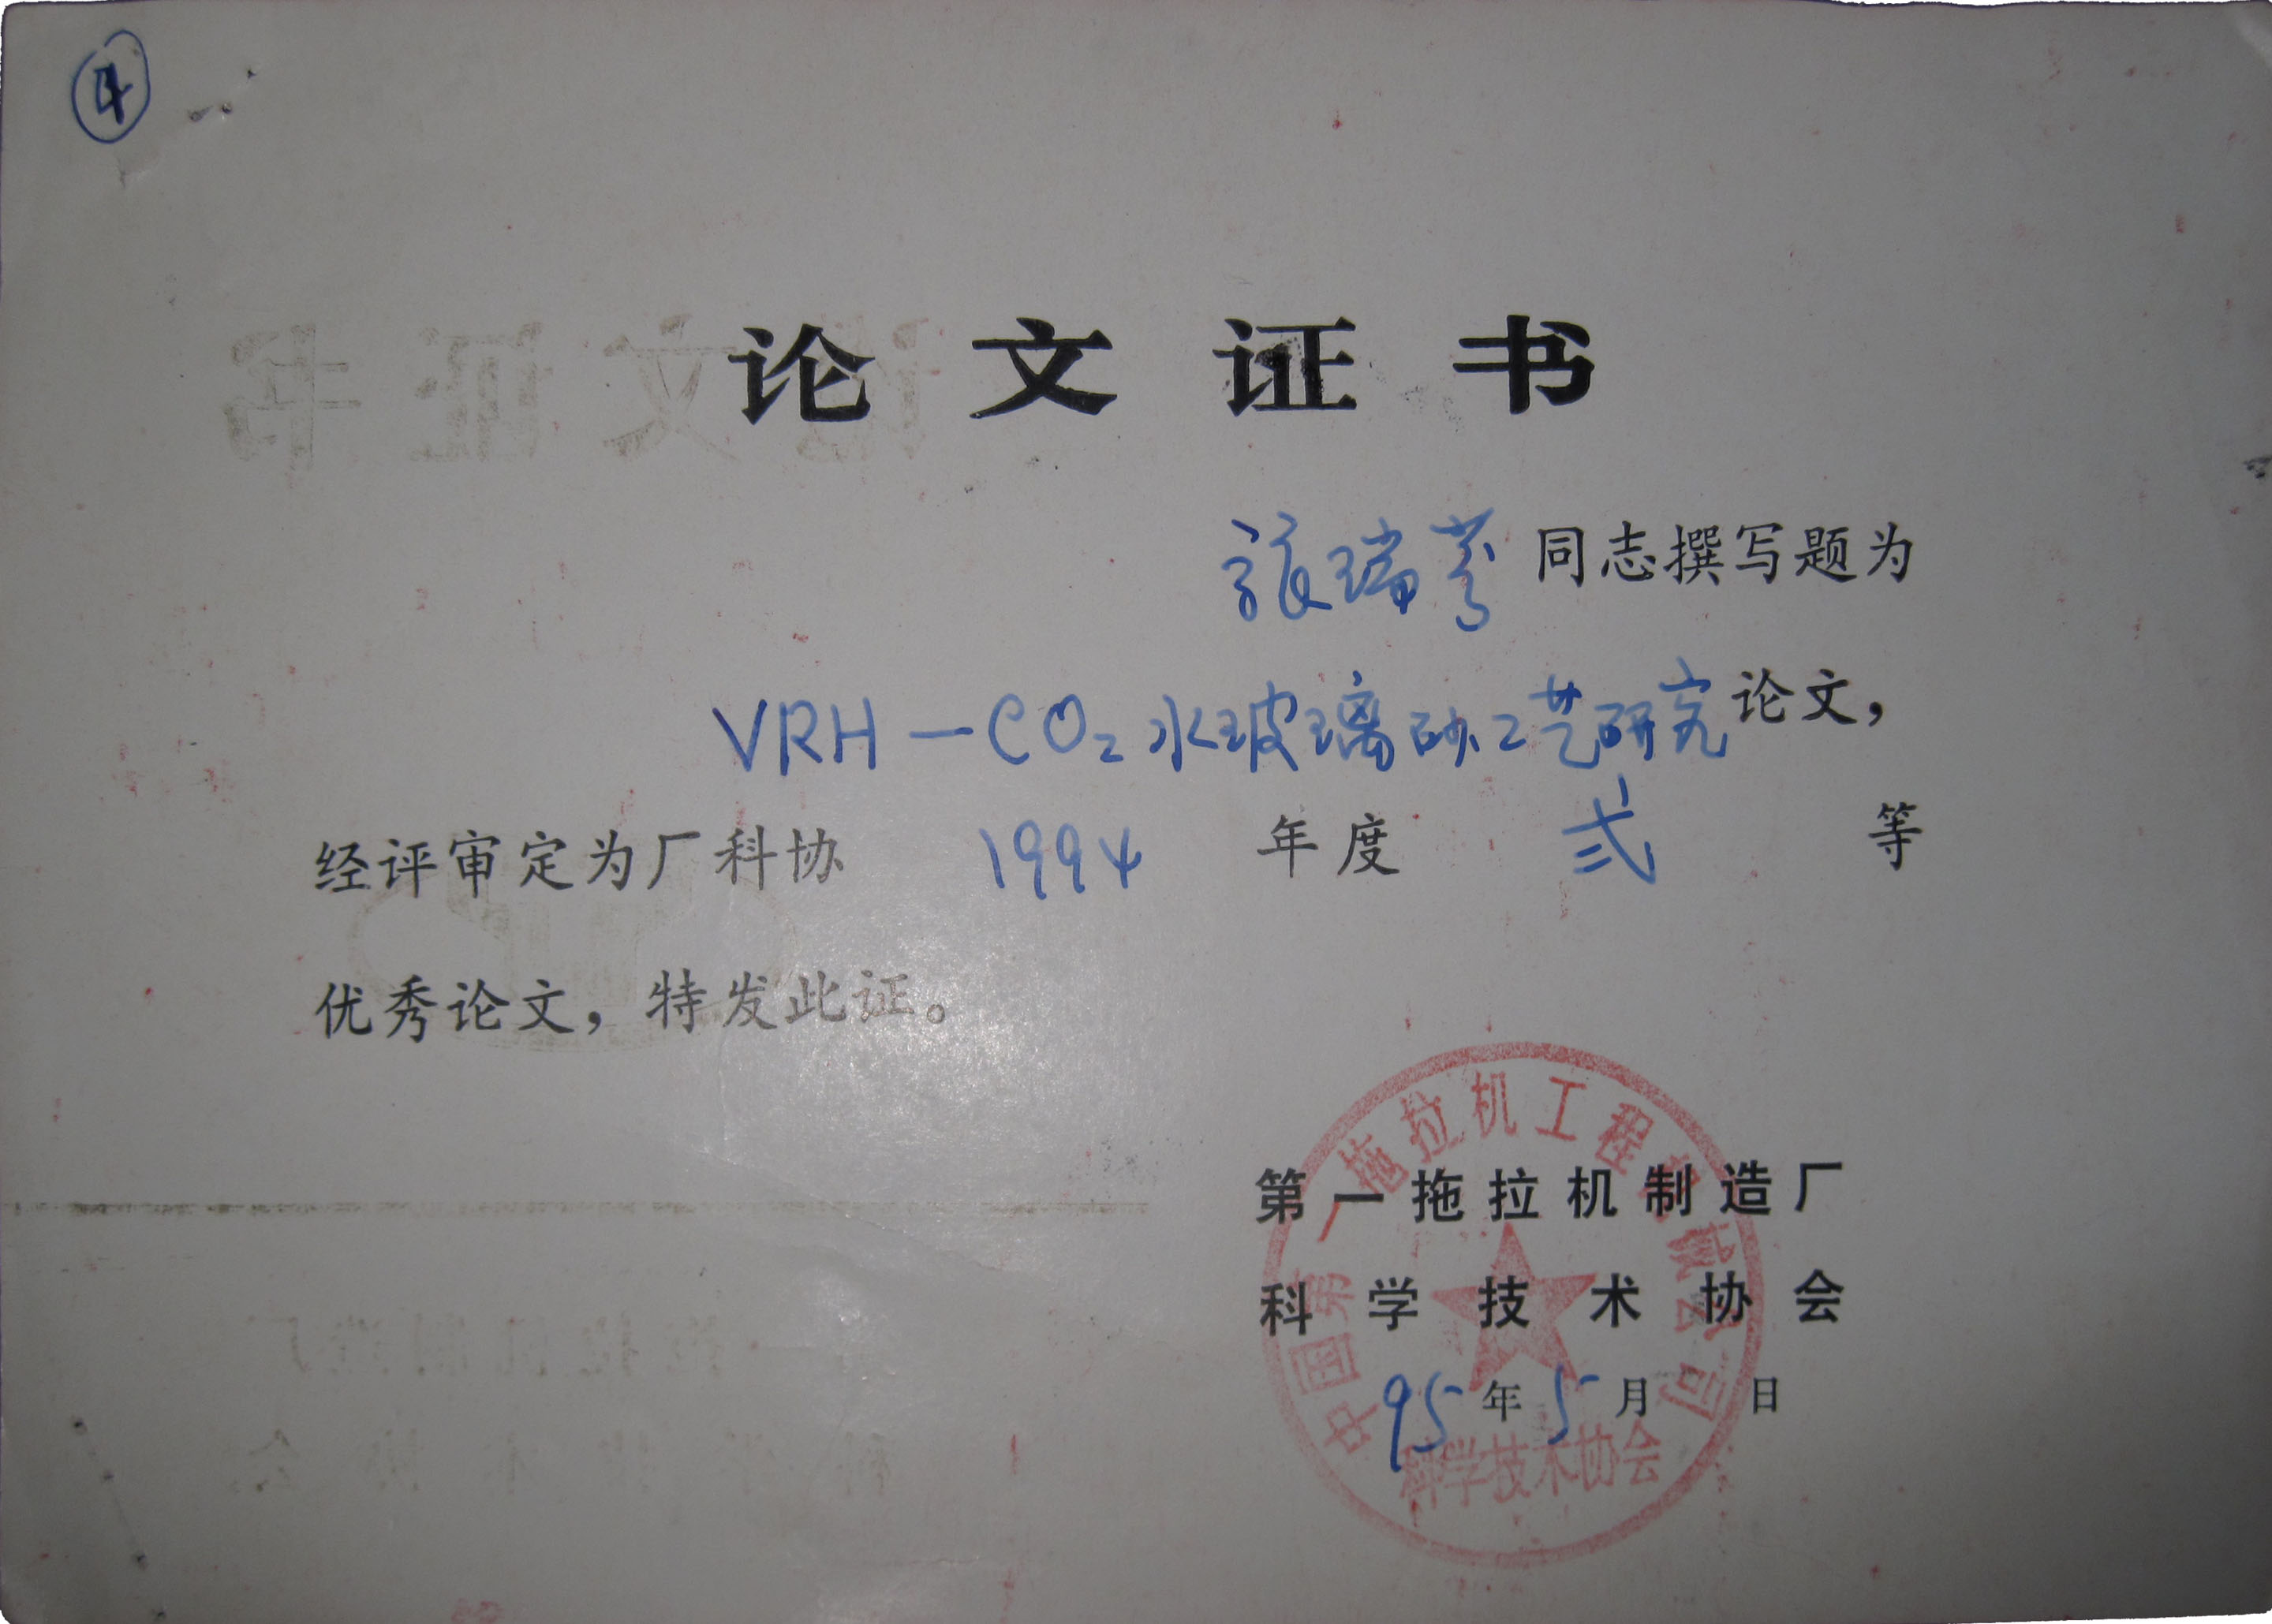 ④
论文证书
张瑞芬同志撰写题为
VRH-CO₂水玻璃砂工艺研究论文，
经评审定为厂科协 1994 年度 弍 等
优秀论文，特发此证。
第一拖拉机制造厂
科学技术协会
95年5月 日
中国第一拖拉机工程机械公司
科学技术协会